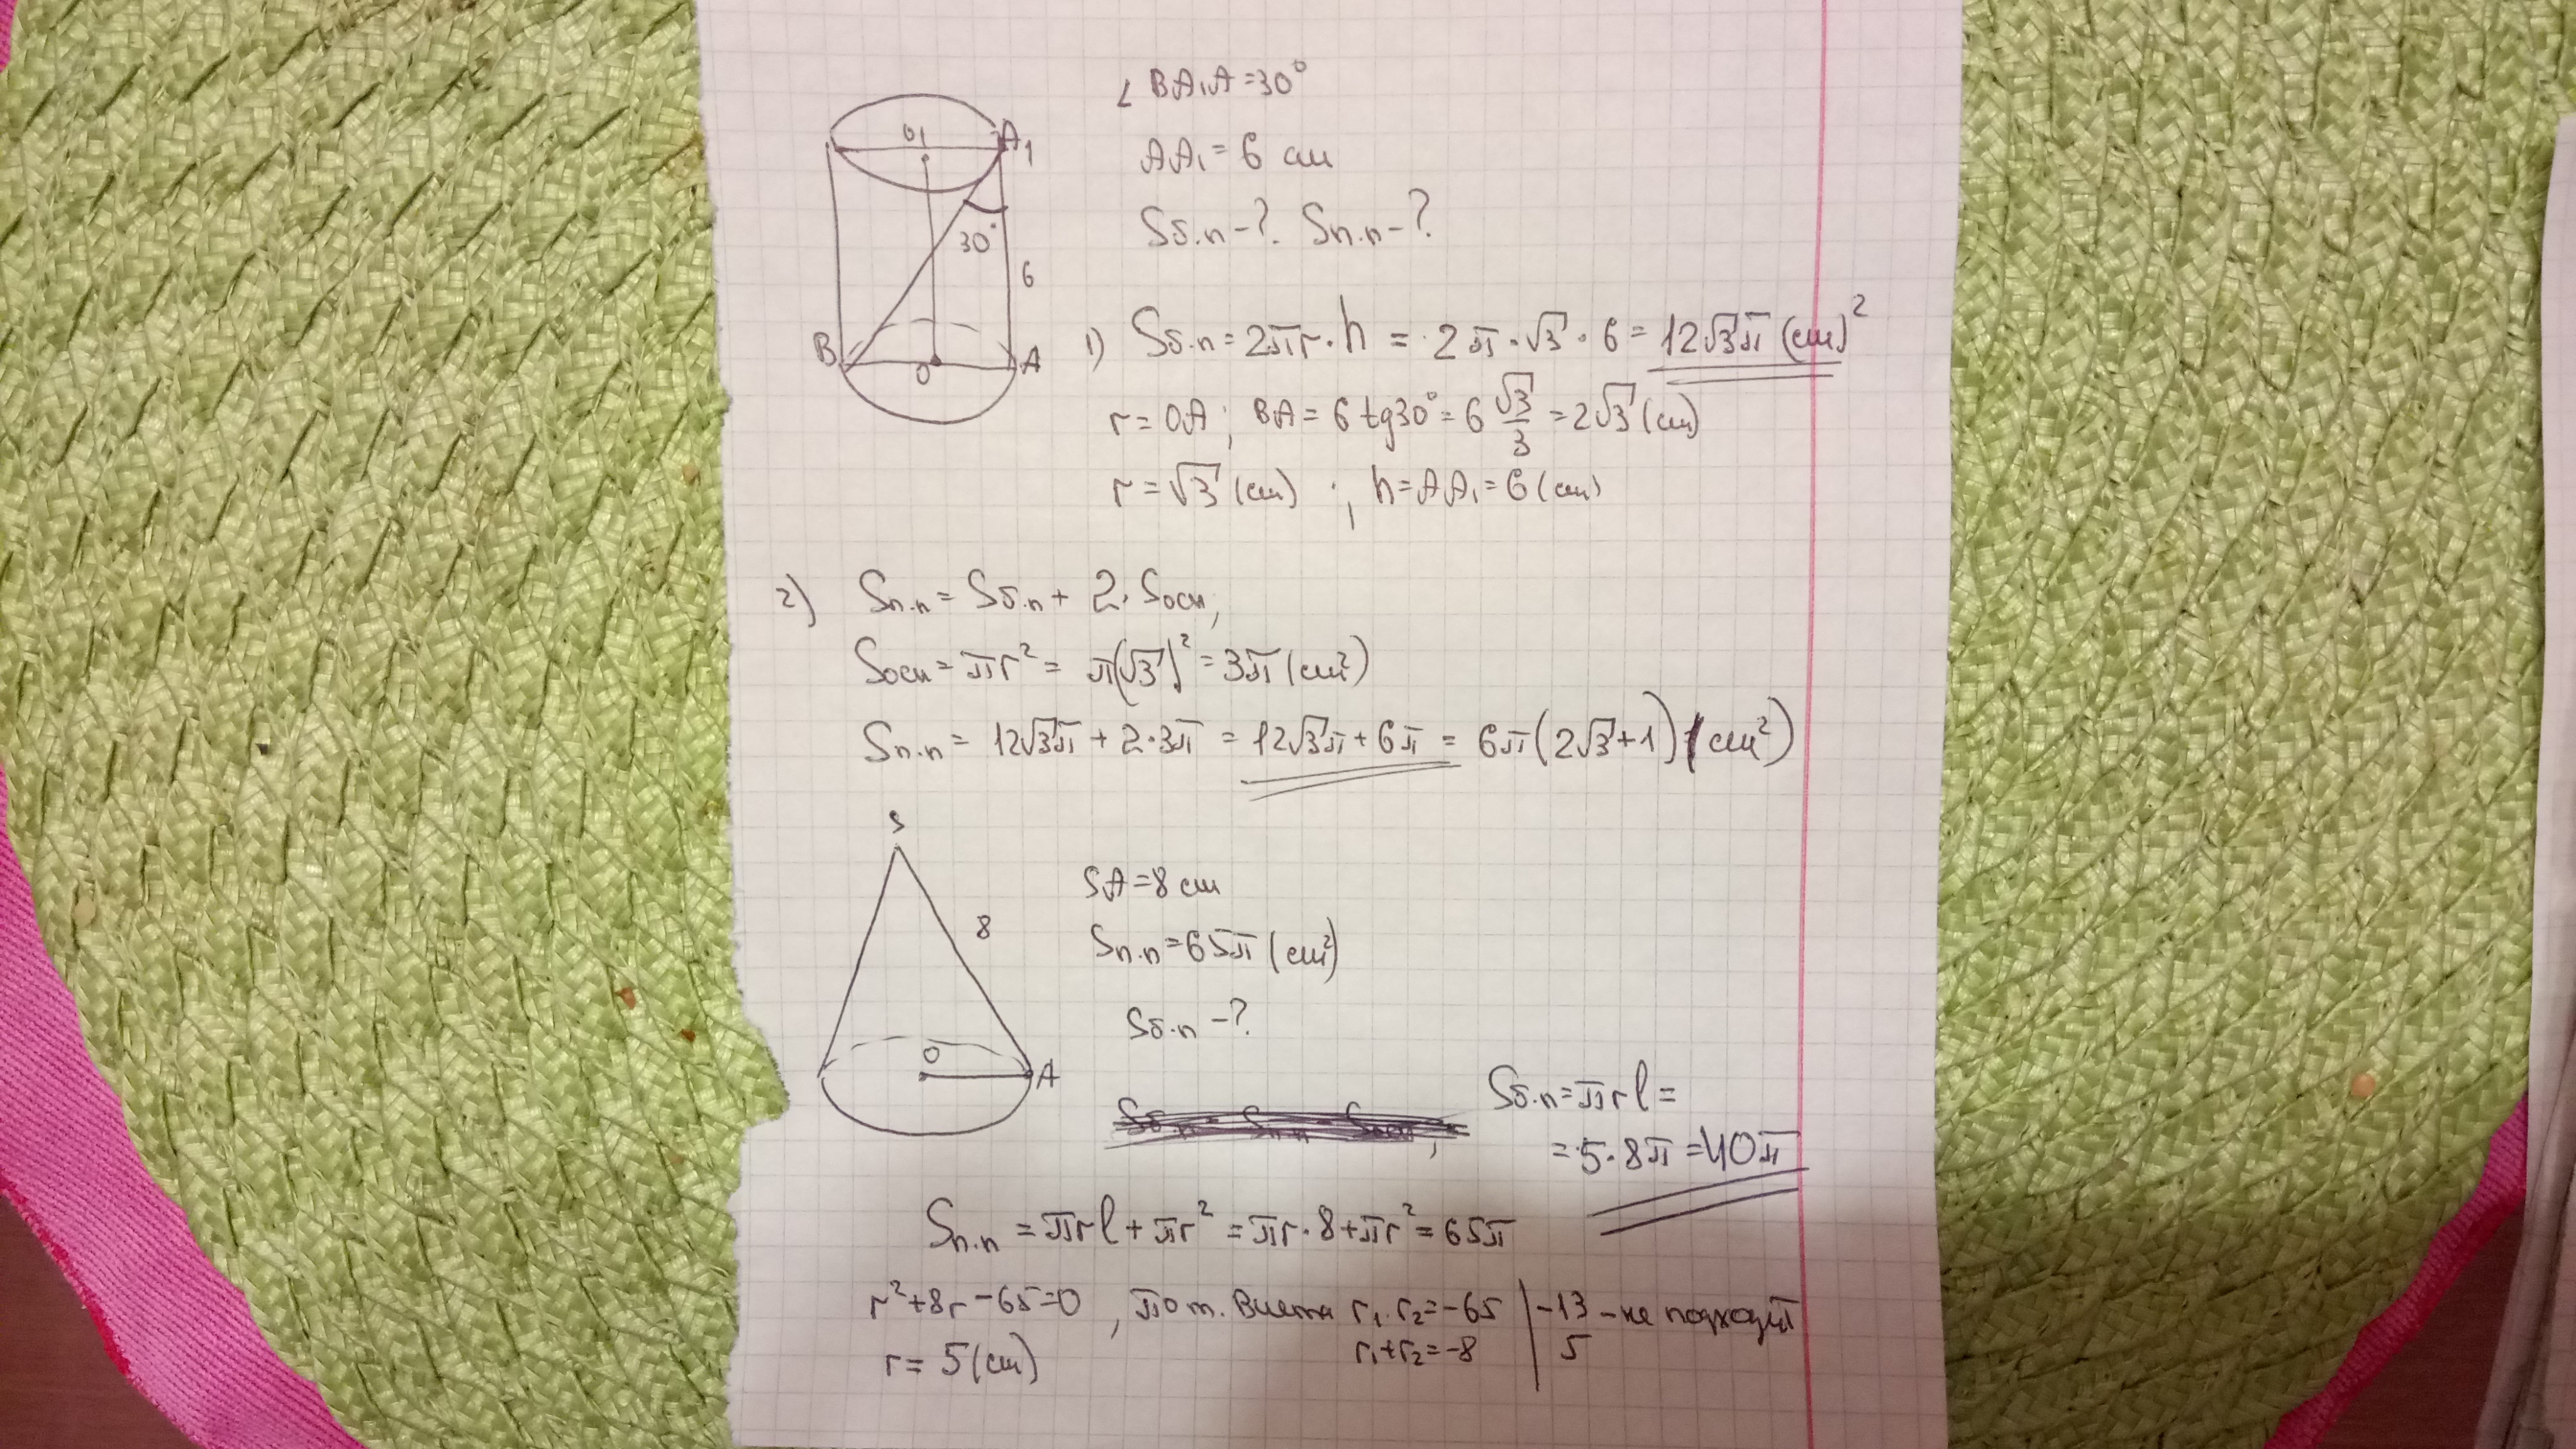 ∠BA₁A=30°
AA₁=6 см
Sб.п-?. Sп.п-?
O₁
A₁
30°
6
B
O
A
1) Sб.п=2πr·h = 2π·√3·6=12√3π (см)²
r=OA; BA=6 tg30°=6 √3/3 =2√3 (см)
r=√3 (см) ; h=AA₁=6 (см)
2) Sп.п= Sб.п+ 2·Sосн;
Sосн=πr²= π(√3)²=3π (см²)
Sп.п= 12√3π+2·3π = 12√3π+6π = 6π(2√3+1) (см²)
S
8
O
A
SA=8 см
Sп.п=65π (см²)
Sб.п-?
Sб.п= Sп.п - Sосн;
Sб.п=πrl=
=5·8π=40π
Sп.п =πrl+πr²=πr·8+πr²=65π
r²+8r-65=0 , по т. Виета r₁·r₂=-65 | -13 -не подходит
r=5 (см) r₁+r₂=-8 | 5